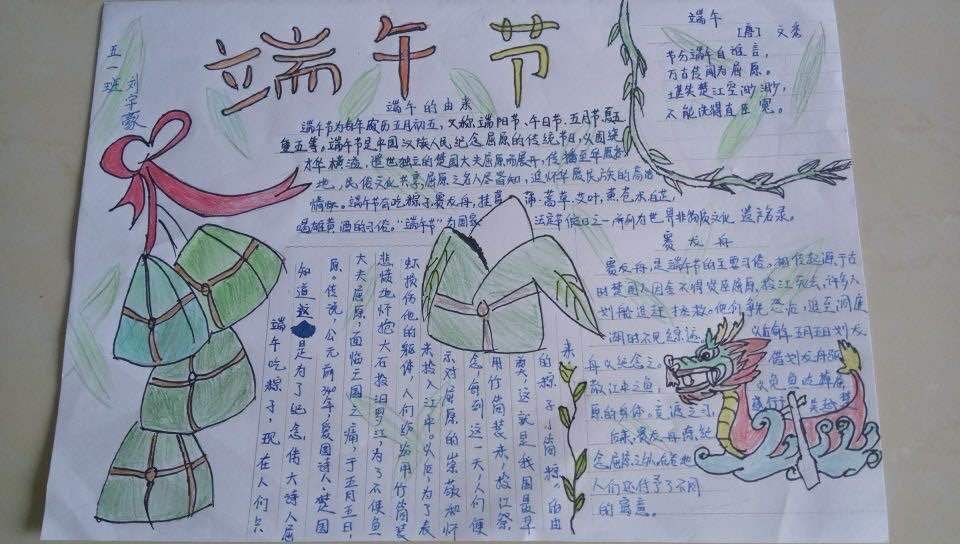 端午节
五一班 刘宇豪
端午
[唐] 文秀
节分端午自谁言，
万古传闻为屈原。
堪笑楚江空渺渺，
不能洗得直臣冤。
端午的由来
端午节为每年农历五月初五，又称端阳节、午日节、五月节、
等。端午节是中国汉族人民纪念屈原的传统节日，以围绕
才华横溢、遗世独立的楚国大夫屈原而展开，传播至华夏各
地，民俗文化共享，屈原之名人尽皆知，追怀华夏民族的高洁
情怀。端午节有吃粽子，赛龙舟，挂菖蒲、蒿草、艾叶，薰苍术、白芷，
喝雄黄酒的习俗。“端午节”为国家法定节假日之一，并列为世界非物质文化遗产名录。
赛龙舟
赛龙舟，是端午节的主要习俗。相传起源于古
时楚国人因舍不得贤臣屈原投江死去，许多人
划船追赶拯救。他们争先恐后，追至洞庭
湖时不见踪迹。
之后每年五月五日划龙
舟以纪念之。
借划龙舟驱
散江中之鱼，
以免鱼吃掉屈
原的身体。竞渡之习，
后来，赛龙舟除纪
念屈原之外，在各地
人们还付予了不同
的寓意。
端午吃粽子，现在人们只
知道是为了纪念伟大诗人屈
原。传说，公元前340年，爱国诗人、楚国
大夫屈原，面临亡国之痛，于五月五日，
悲愤地怀抱大石投汨罗江，为了不使鱼
虾损伤他的躯体，人们纷纷用竹筒装
米投入江中。以后，为了表
示对屈原的崇敬和怀
念，每到这一天，人们便
用竹筒装米，投江祭
奠，这就是我国最早
的粽子“筒粽”的由
来。